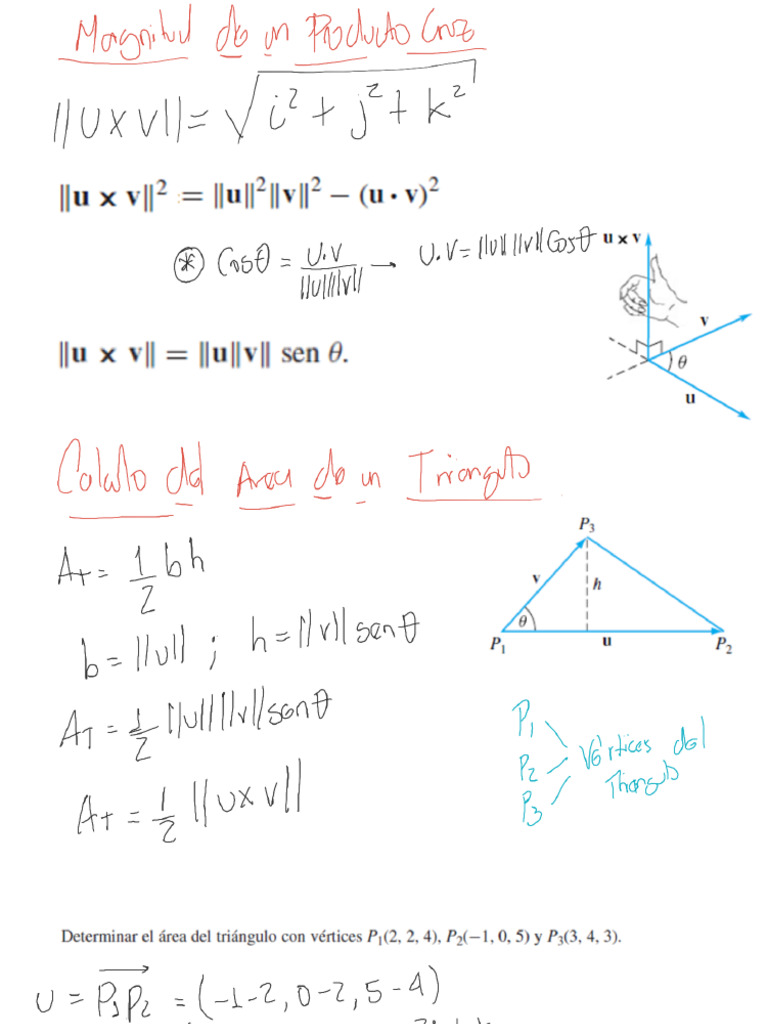 Magnitud de un Producto Cruz
||U x V|| = √i² + j² + k²
||u × v||² = ||u||²||v||² − (u • v)²
* Cosθ = U.V / ||U||||V|| → U.V = ||U|| ||V|| Cosθ
u × v
v
θ
u
||u × v|| = ||u||||v|| sen θ.
Calculo del Area de un Triangulo
A_T = 1/2 bh
b = ||U|| ; h = ||V|| senθ
A_T = 1/2 ||U|| ||V|| senθ
A_T = 1/2 ||U x V||
P₃
v
h
θ
P₁ u P₂
P₁
P₂ Vértices del
P₃ Triangulo
Determinar el área del triángulo con vértices P₁(2, 2, 4), P₂(−1, 0, 5) y P₃(3, 4, 3).
U = P₁P₂ = (-1-2, 0-2, 5-4)